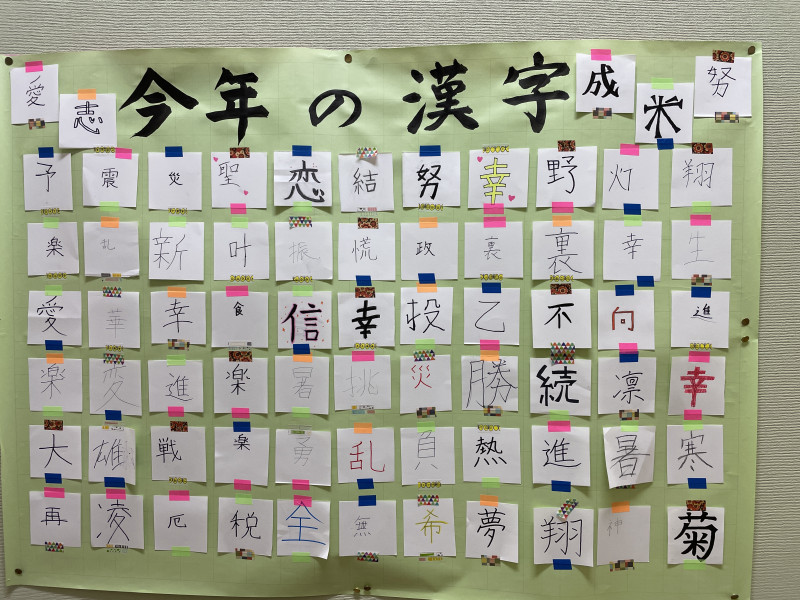 今年の漢字
愛 志 成 米 努
予 震 災 聖 恋 結 努 幸 野 灯 翔
楽 乱 新 叶 振 慌 政 裏 裏 幸 生
愛 華 幸 食 信 幸 投 乙 不 向 進
楽 変 進 楽 暑 挑 災 勝 続 凛 幸
大 雄 戦 楽 勇 乱 負 熱 進 暑 寒
再 凌 厄 税 全 無 希 夢 翔 神 菊